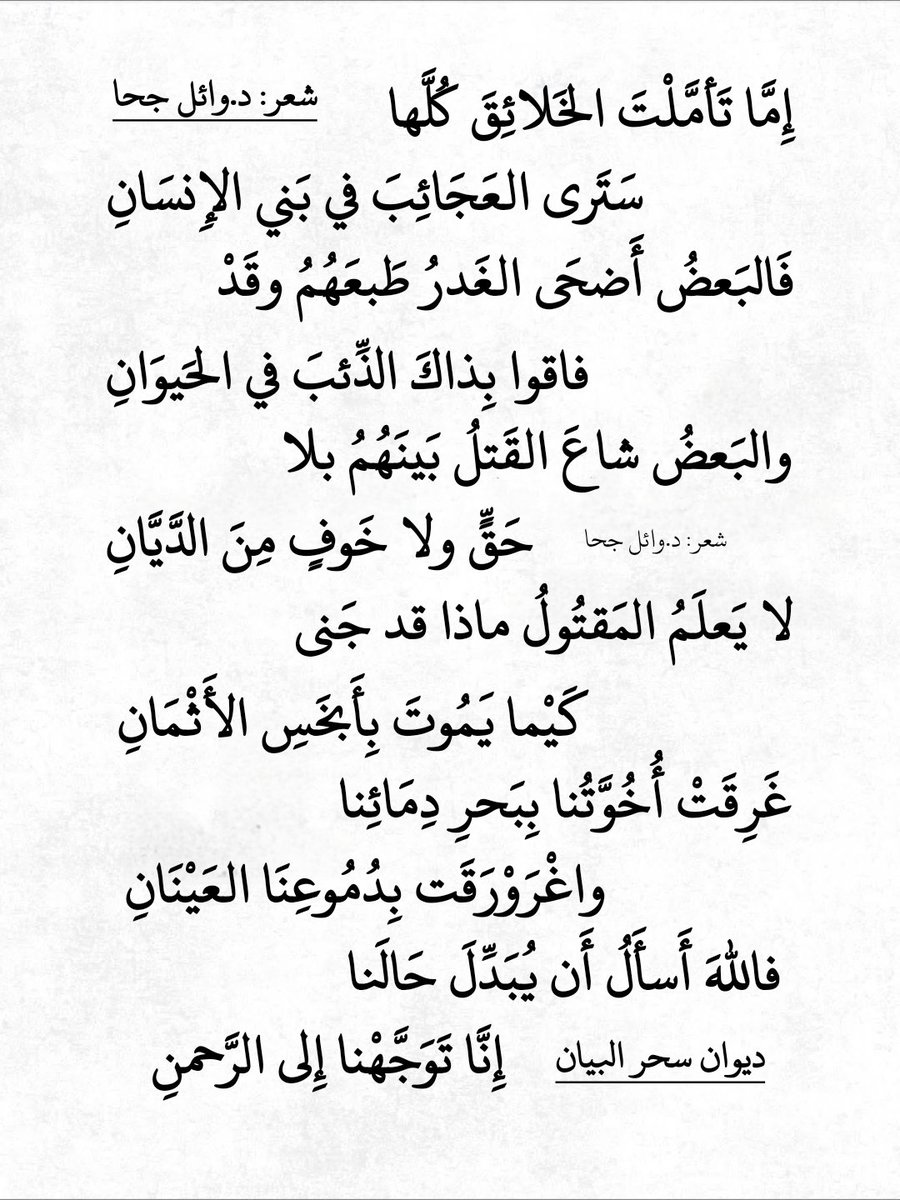 إِمَّا تَأمَّلْتَ الخَلائِقَ كُلَّها شعر: د.وائل جحا
سَتَرى العَجَائِبَ في بَني الإِنسَانِ
فَالبَعضُ أَضحَى الغَدرُ طَبعَهُمُ وقَدْ
فاقوا بِذاكَ الذِّئبَ في الحَيوَانِ
والبَعضُ شاعَ القَتلُ بَينَهُمُ بلا
شعر: د.وائل جحا حَقٍّ ولا خَوفٍ مِنَ الدَّيَّانِ
لا يَعلَمُ المَقتُولُ ماذا قد جَنى
كَيْما يَمُوتَ بِأَبخَسِ الأَثْمَانِ
غَرِقَتْ أُخُوَّتُنا بِبَحرِ دِمَائِنا
واغْرَوْرَقَت بِدُمُوعِنَا العَيْنَانِ
فاللهَ أَسأَلُ أَن يُبَدِّلَ حَالَنا
ديوان سحر البيان إِنَّا تَوَجَّهْنا إِلى الرَّحمنِ